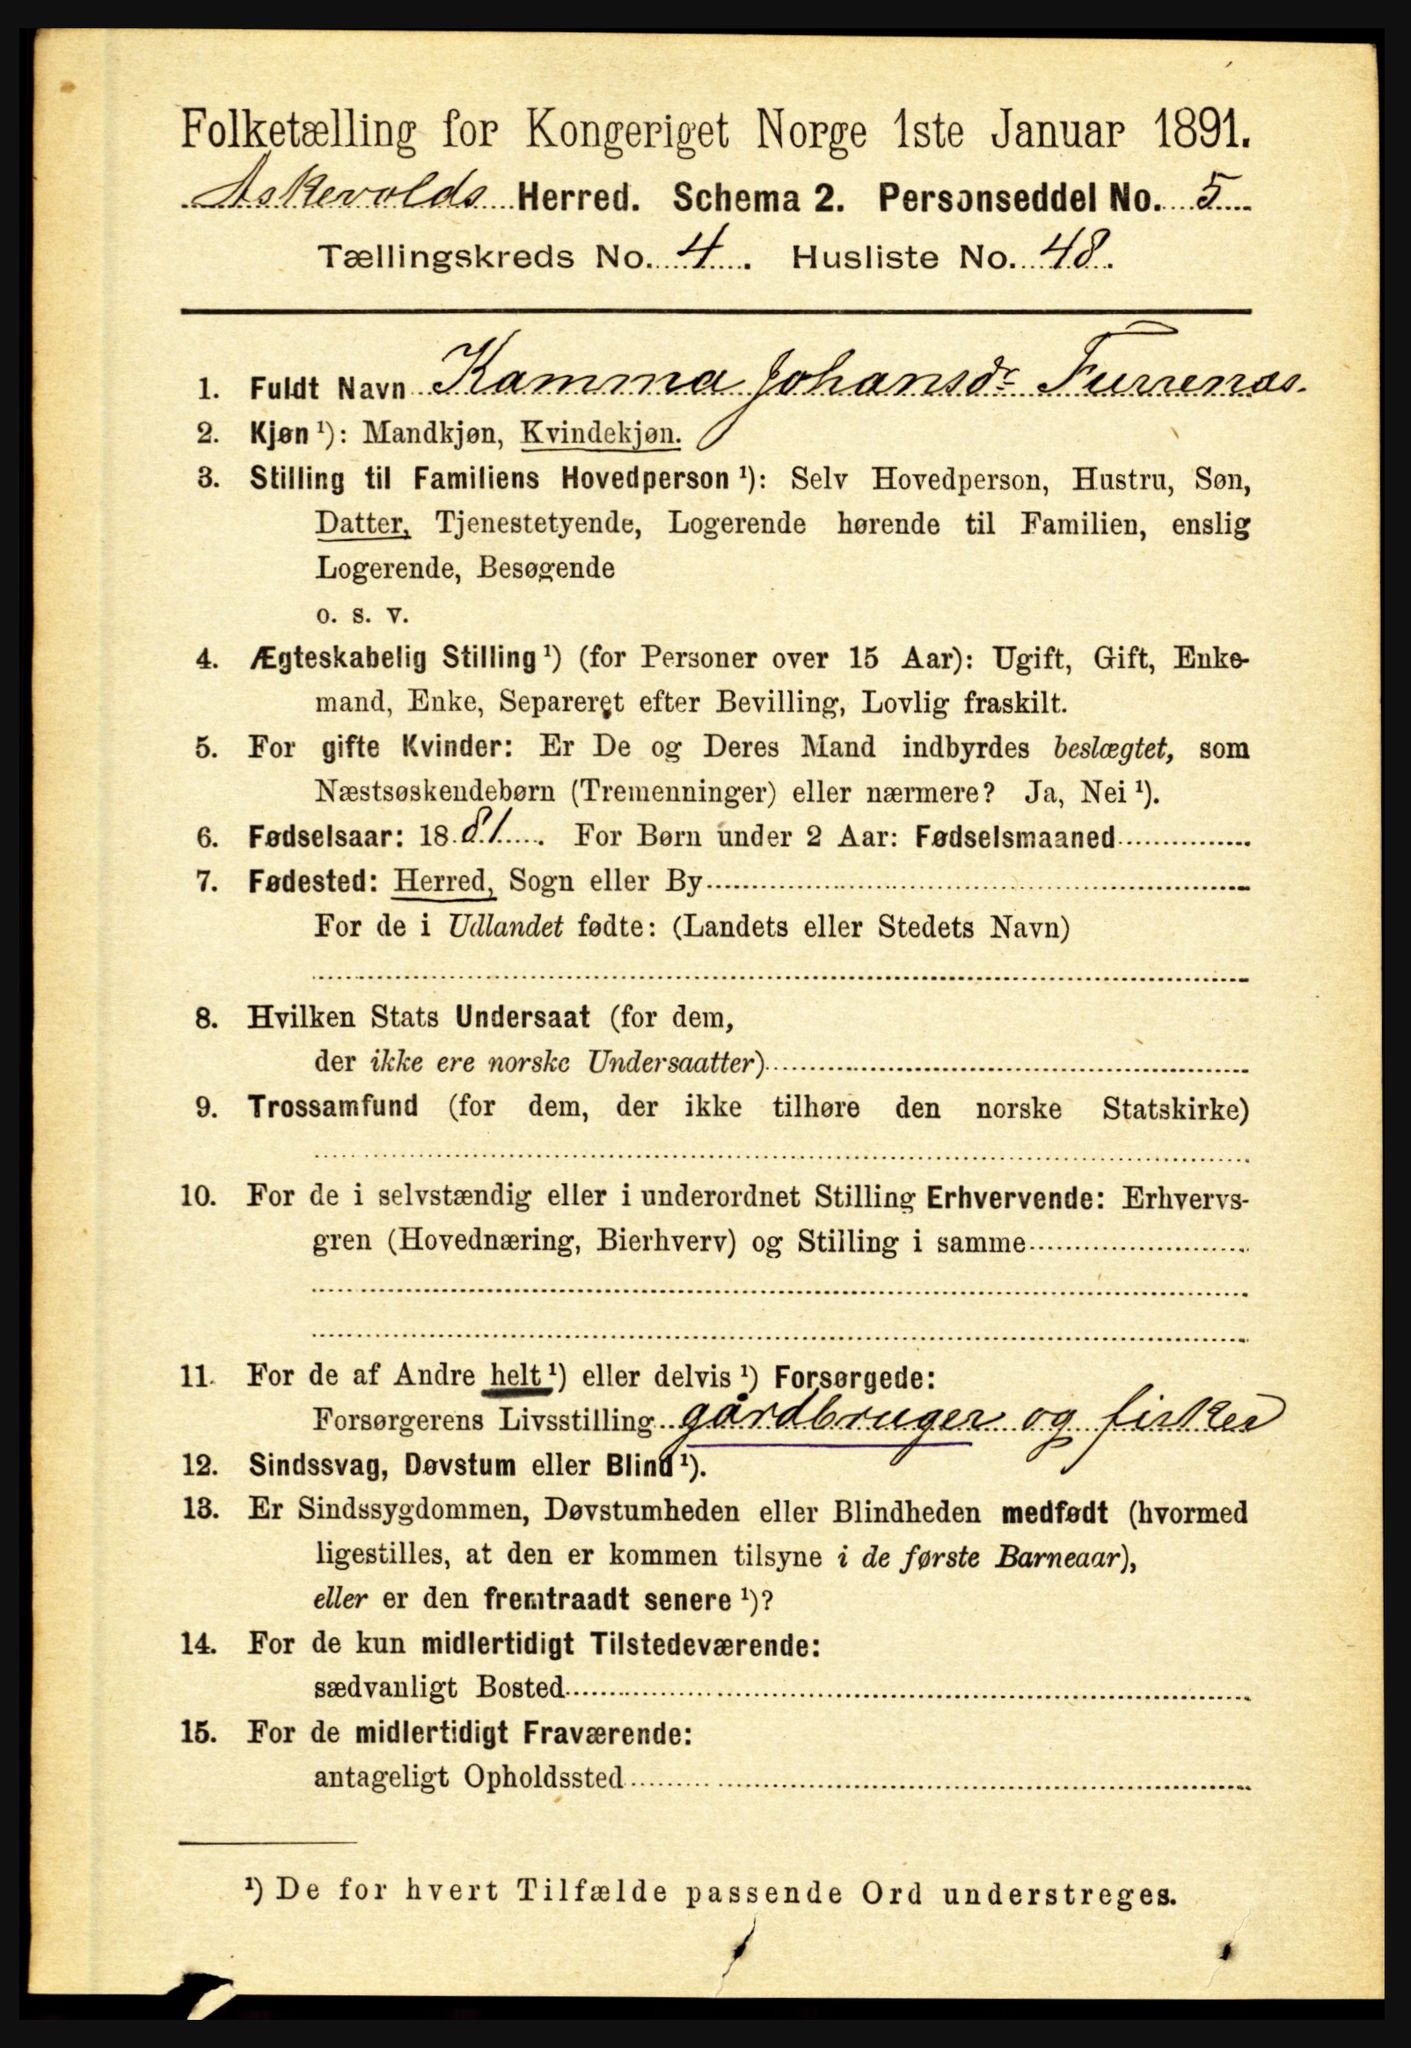 Folketælling for Kongeriget Norge 1ste Januar 1891.
Askevolds Herred. Schema 2. Personseddel No. 5
Tællingskreds No. 4. Husliste No. 48.
1. Fuldt Navn Kamma Johansdr Furrenæs.
2. Kjøn ¹): Mandkjøn, Kvindekjøn.
3. Stilling til Familiens Hovedperson ¹): Selv Hovedperson, Hustru, Søn,
Datter, Tjenestetyende, Logerende hørende til Familien, enslig
Logerende, Besøgende
o. s. v.
4. Ægteskabelig Stilling ¹) (for Personer over 15 Aar): Ugift, Gift, Enke-
mand, Enke, Separeret efter Bevilling, Lovlig fraskilt.
5. For gifte Kvinder: Er De og Deres Mand indbyrdes beslægtet, som
Næstsøskendebørn (Tremenninger) eller nærmere? Ja, Nei ¹).
6. Fødselsaar: 1881. For Børn under 2 Aar: Fødselsmaaned
7. Fødested: Herred, Sogn eller By
For de i Udlandet fødte: (Landets eller Stedets Navn)
8. Hvilken Stats Undersaat (for dem,
der ikke ere norske Undersaatter)
9. Trossamfund (for dem, der ikke tilhøre den norske Statskirke)
10. For de i selvstændig eller i underordnet Stilling Erhvervende: Erhvervs-
gren (Hovednæring, Bierhverv) og Stilling i samme
11. For de af Andre helt ¹) eller delvis ¹) Forsørgede:
Forsørgerens Livsstilling gårdbruger og fisker
12. Sindssvag, Døvstum eller Blind ¹).
13. Er Sindssygdommen, Døvstumheden eller Blindheden medfødt (hvormed
ligestilles, at den er kommen tilsyne i de første Barneaar),
eller er den fremtraadt senere ¹)?
14. For de kun midlertidigt Tilstedeværende:
sædvanligt Bosted
15. For de midlertidigt Fraværende:
antageligt Opholdssted
¹) De for hvert Tilfælde passende Ord understreges.